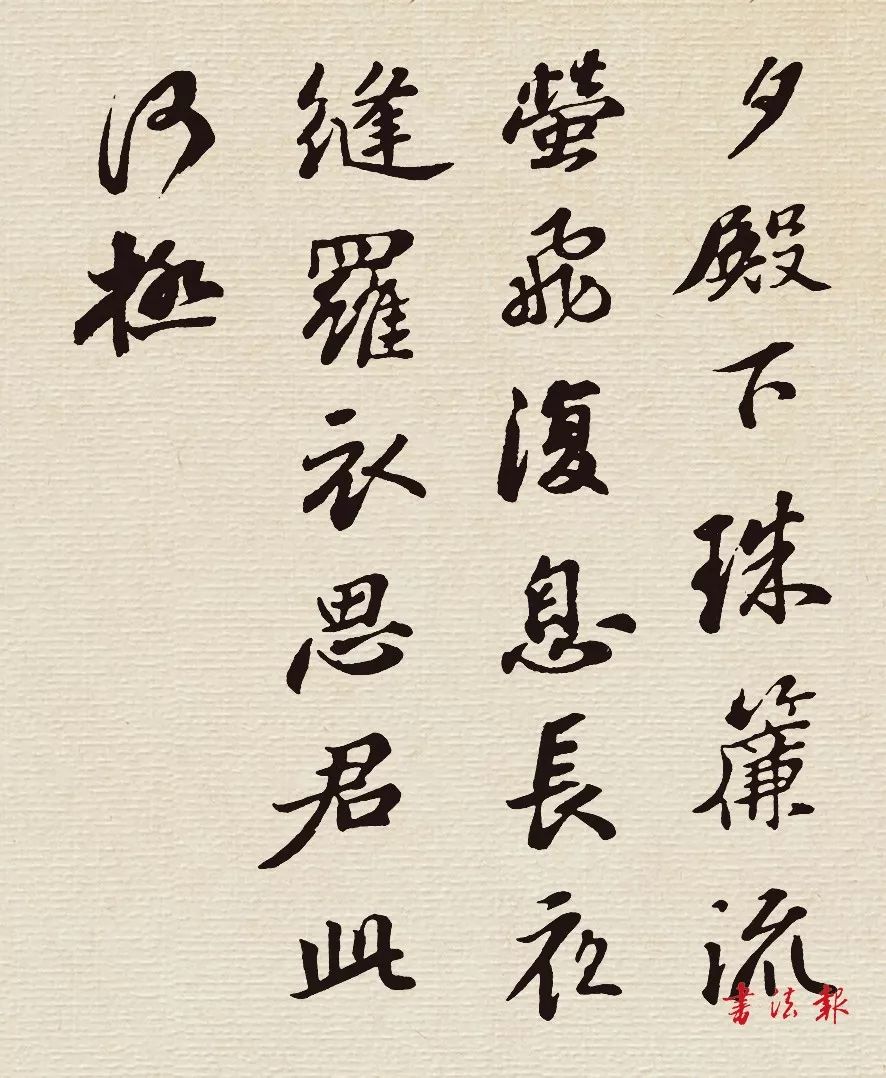 夕殿下珠簾流
螢飛復息長夜
縫羅衣思君此
何極
書法報